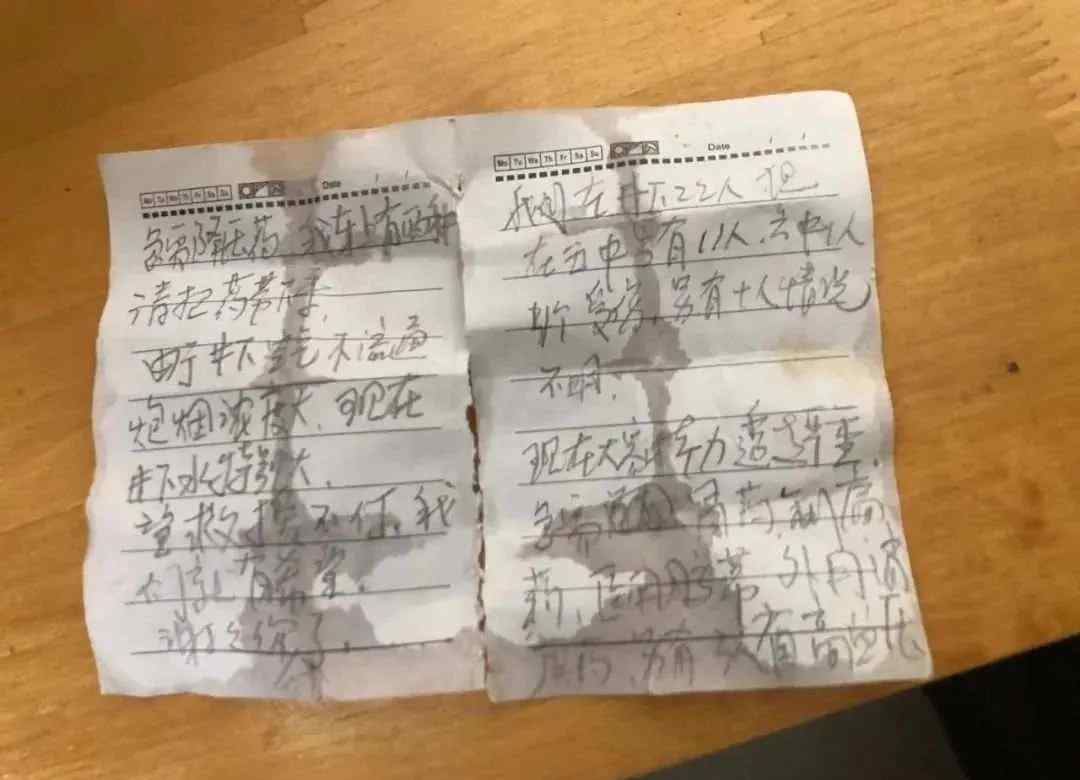 Mo Tu We Th Fr Sa Su Date
我们在井下22人 但
在五中段有11人.六中1人
4个受伤,另有十人情况
不明.
现在大部分体力透支严重
急需 胃药,制痛
药,医用胶带 外用消
炎药,另有3人有高血压
Mo Tu We Th Fr Sa Su Date
急需降压药 我车上有两种
请把药带下来,
由于井下空气不流通
炮烟浓度大,现在
井下水特别大.
望救援不停,我
们就有希望.
谢谢你们了.